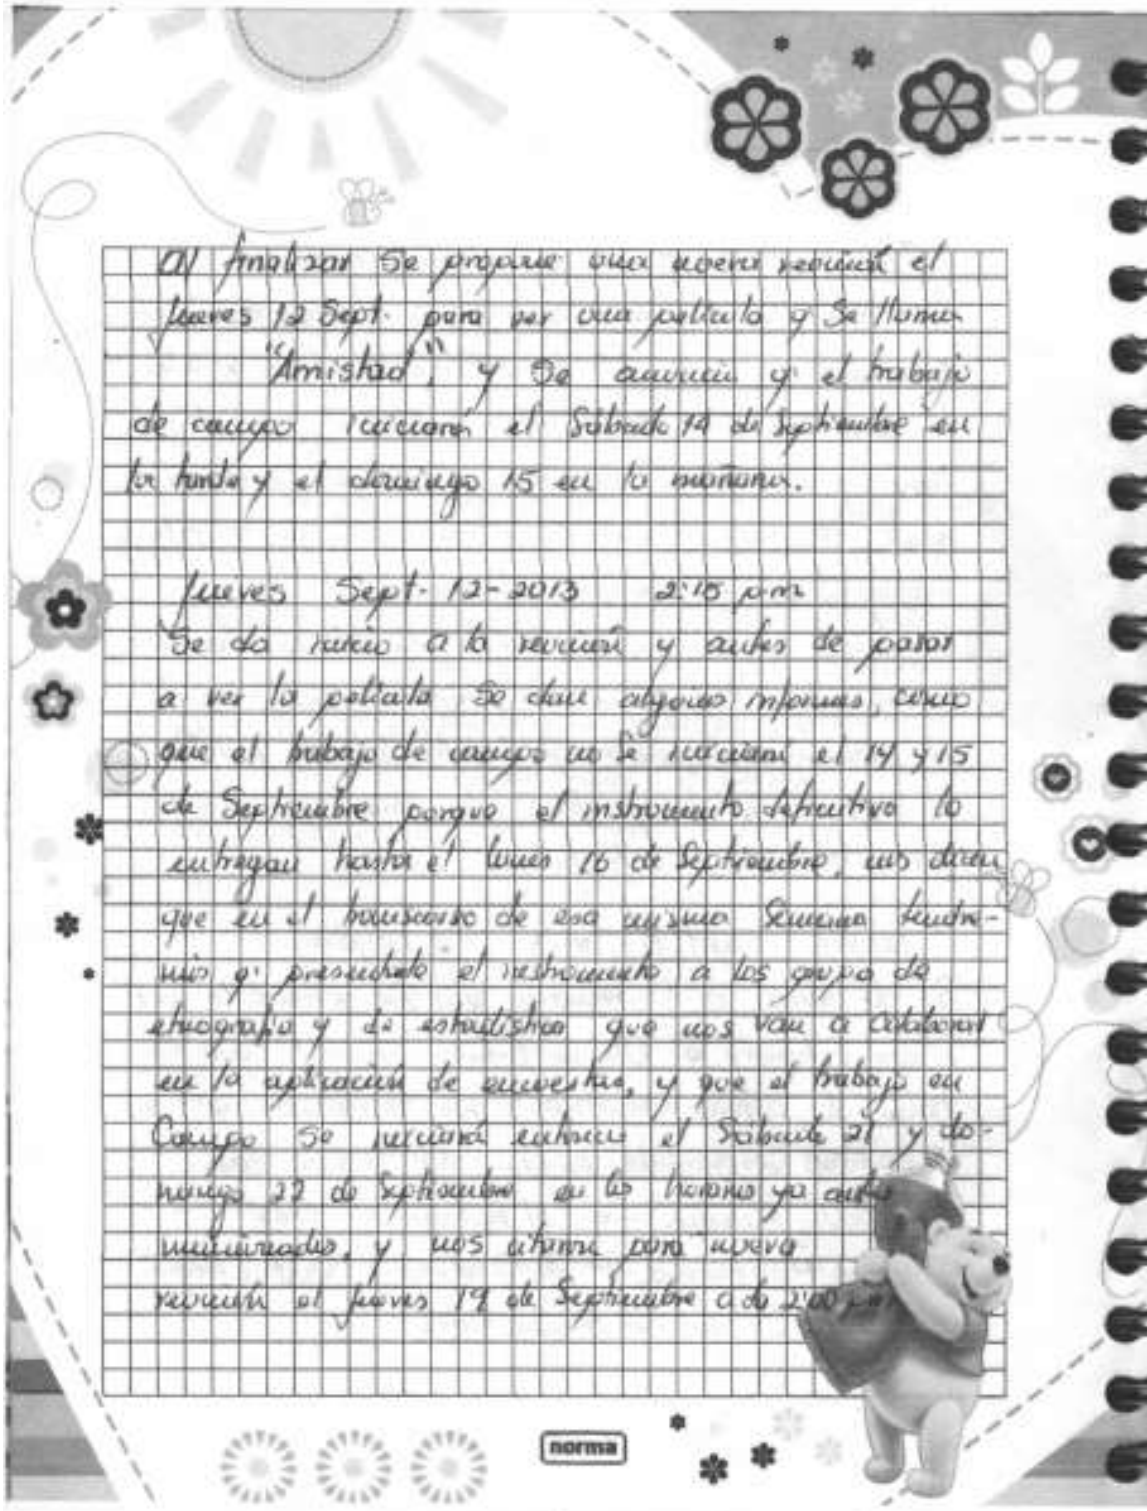 Al finalizar se propone una nueva reunión el
Jueves 12 Sept. para ver una película q se llama
"Amistad", y se anuncia q' el trabajo
de campo iniciará el Sábado 14 de Septiembre en
la tarde y el domingo 15 en la mañana.
Jueves Sept. 12-2013 2:15 p.m
Se da inicio a la reunión y antes de pasar
a ver la película se dan algunos informes, como
que el trabajo de campo no se iniciará el 14 y 15
de Septiembre porque el instrumento definitivo lo
entregan hasta el lunes 16 de Septiembre, nos dicen
que en el transcurso de esa misma Semana tendre-
mos q' presentarle el instrumento a los grupo de
etnografía y de estadística que nos van a colaborar
en la aplicación de encuestas, y que el trabajo en
Campo se iniciará entonces el Sábado 21 y do-
mingo 22 de Septiembre en los horarios ya ante
mencionados, y nos citaron para nueva
reunión el jueves 19 de Septiembre a la 2:00 pm
norma